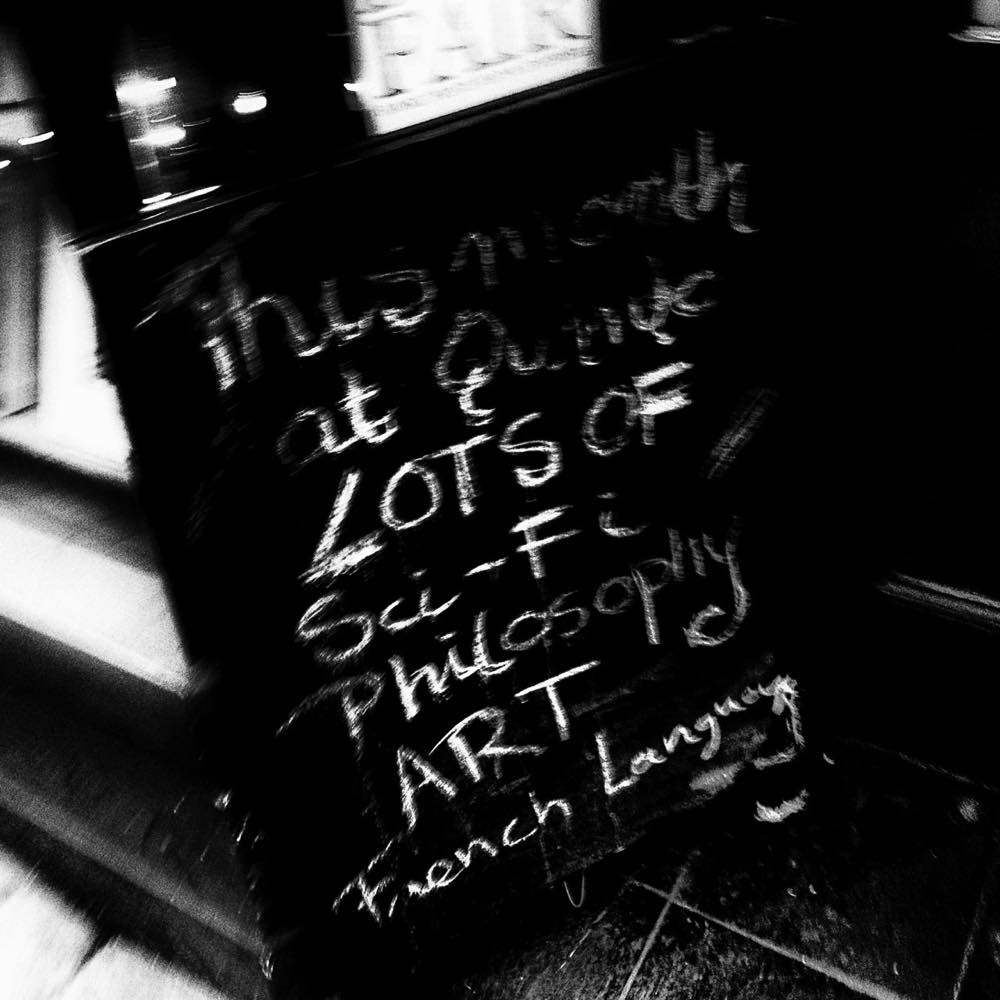 This month
at Quirk
LOTS OF
Sci-Fi
Philosophy
ART
French Language